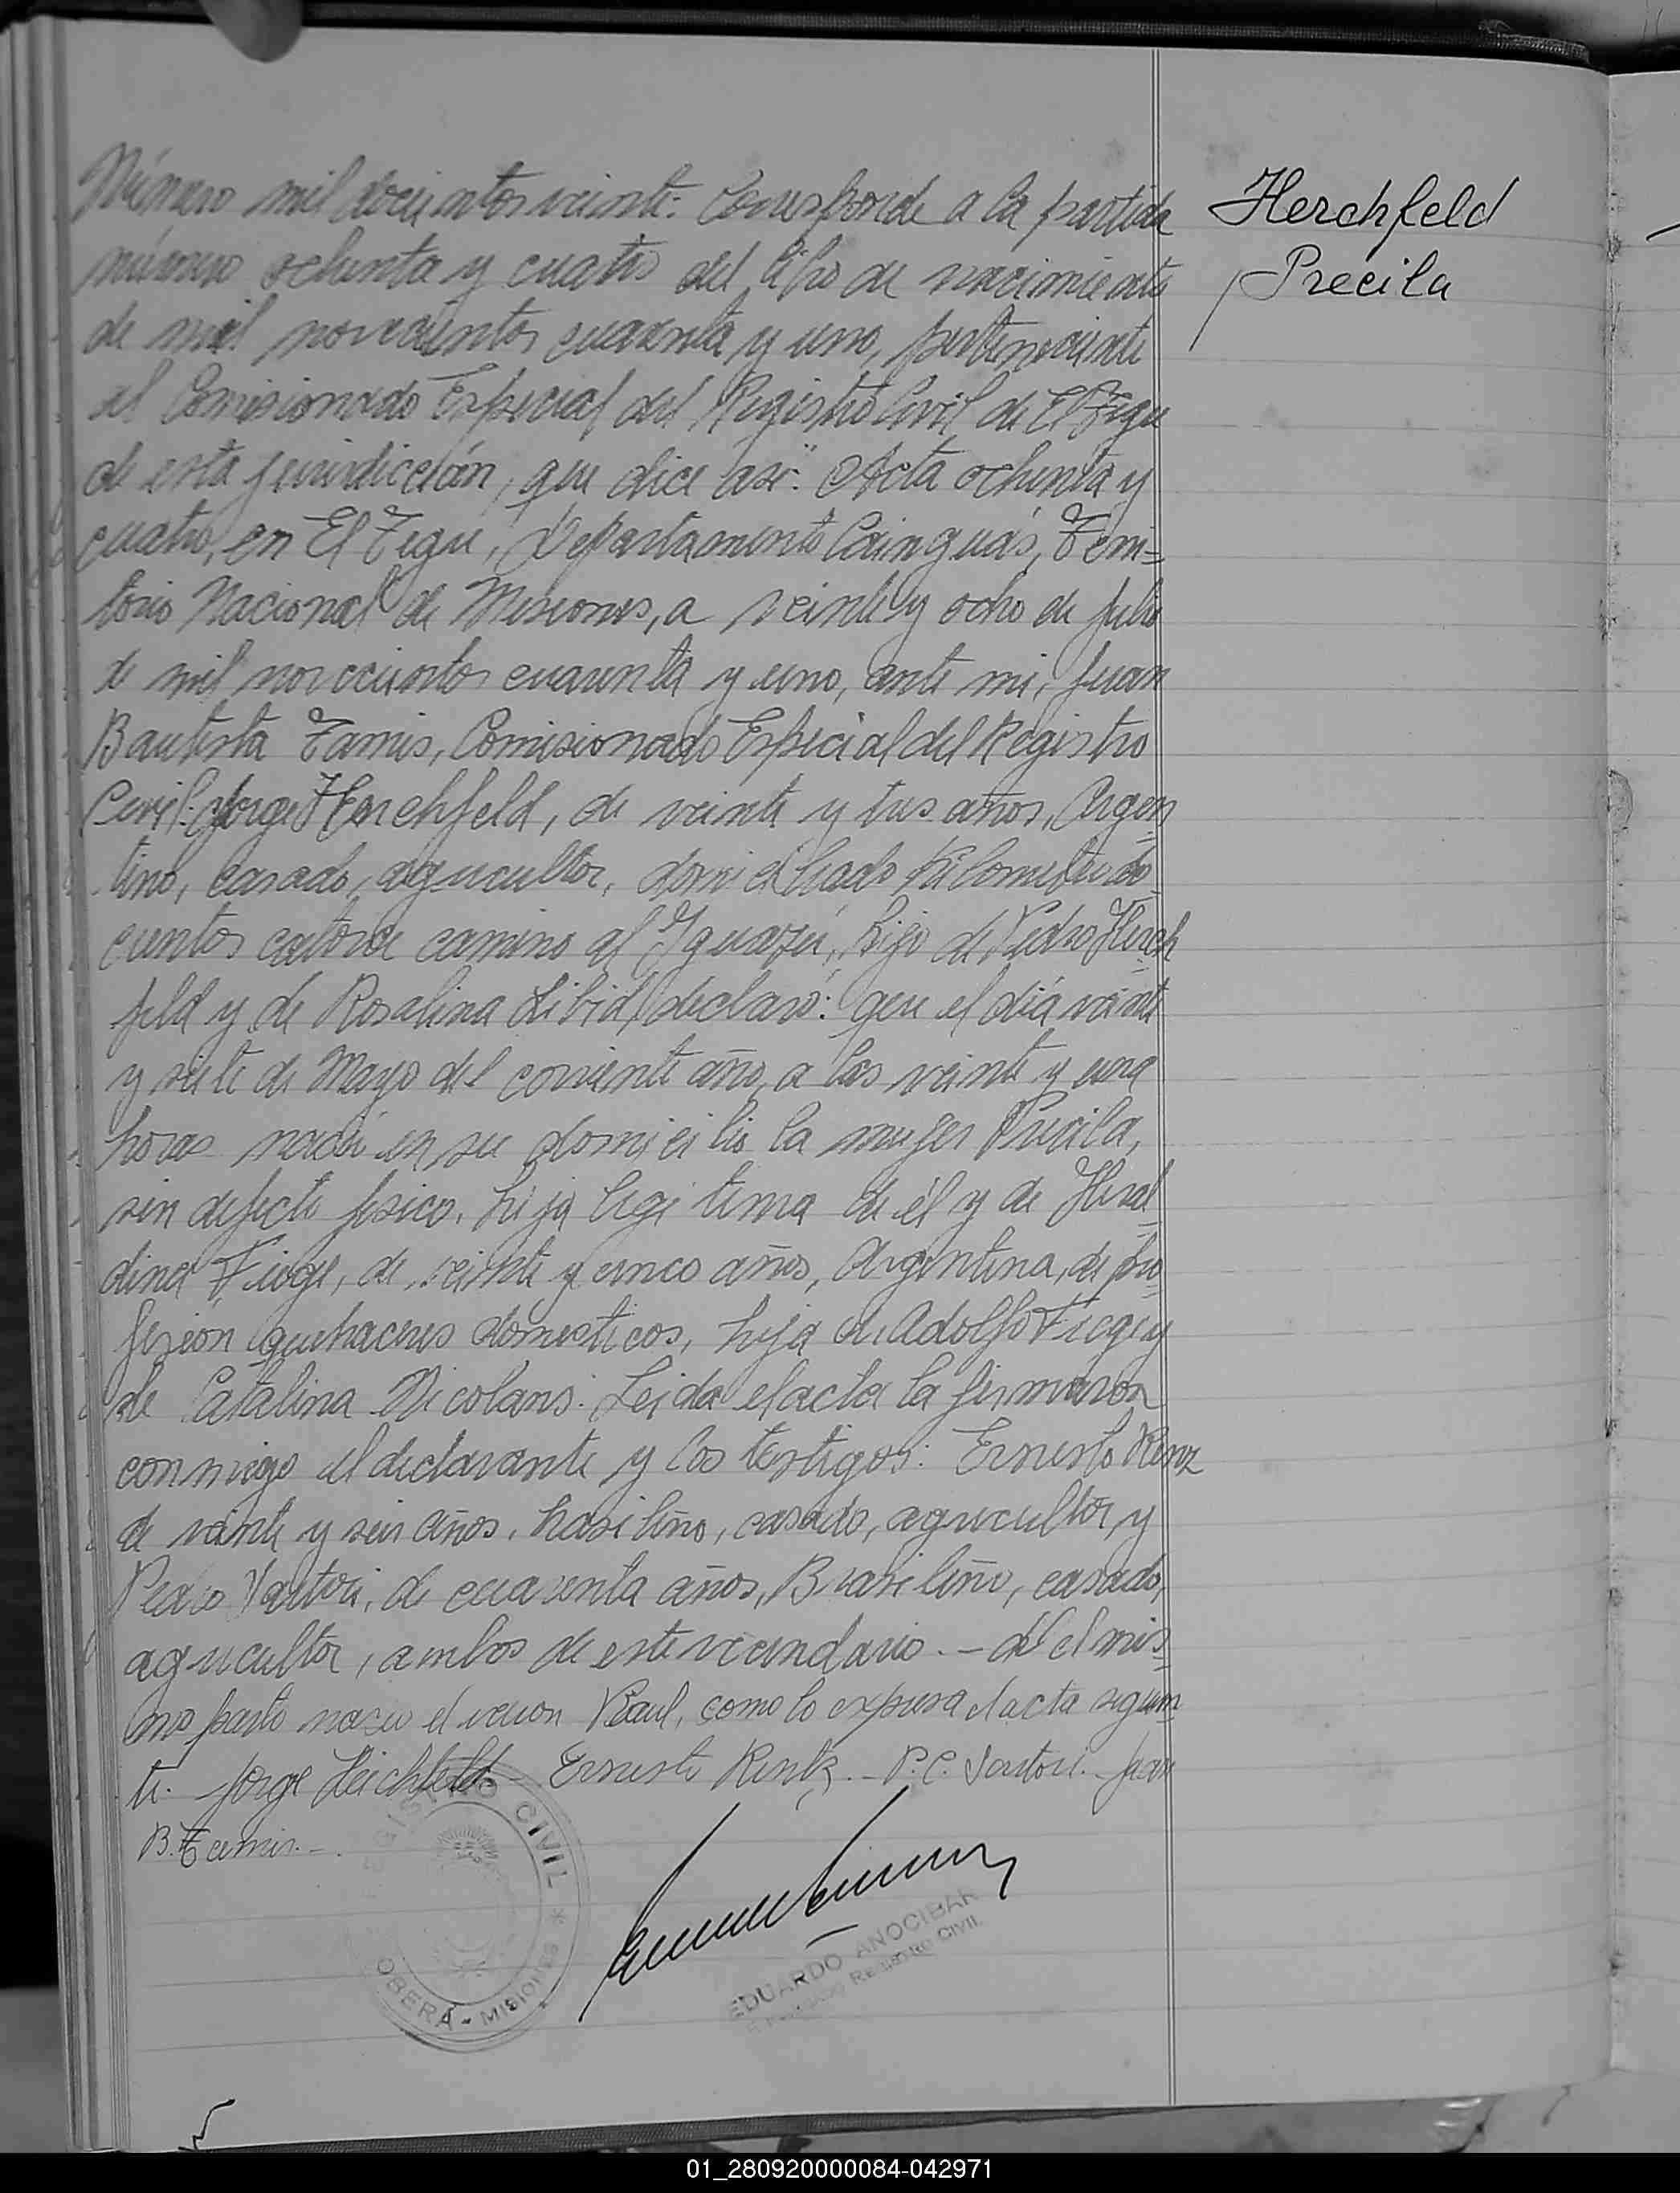 Número mil docientos veinte: Corresponde a la partida
número ochenta y cuatro del libro de nacimiento
de mil novecientos cuarenta y uno, perteneciente
al Comisionado Especial del Registro Civil de El Tigre
de esta jurisdicción, que dice así: "Acta ochenta y
cuatro, en El Tigre, Departamento Cainguás, Terri=
torio Nacional de Misiones, a veinte y ocho de julio
de mil novecientos cuarenta y uno, ante mi, Juan
Bautista Tamis, Comisionado Especial del Registro
Civil: Jorge Herchfeld, de veinte y tres años, Argen
tino, casado, agricultor, domiciliado Kilometro do
cientos catorce camino al Yguazú, hijo de Pedro Herch
feld y de Rosalina Libid, declaró: que el día veinte
y siete de Mayo del corriente año, a las veinte y una
horas nació en su domicilio la mujer Precila,
sin defecto fisico, hija legitima de él y de
dina de veinte y cinco años, Argentina, de pro
fesion quehaceres domesticos, hija de Adolfo y
de Catalina Nicolans. Leida el acta la firmaron
conmigo el declarante y los testigos: Ernesto Renz
de veinte y seis años, brasileño, casado, agricultor, y
Pedro Sartori, de cuarenta años, Brasileño, casado,
agricultor, ambos de este vecindario. - del mis
mo parto nacio el varon Raul, como lo expresa el acta siguien
te. Jorge Herchfeld - Ernesto Rentz. - P. C. Sartori. - Juan
B. Tamis. -
Herchfeld
Precila
REGISTRO CIVIL * OBERÁ - MISIONES
EDUARDO ANOCIBAR
REGISTRO CIVIL
01_280920000084-042971